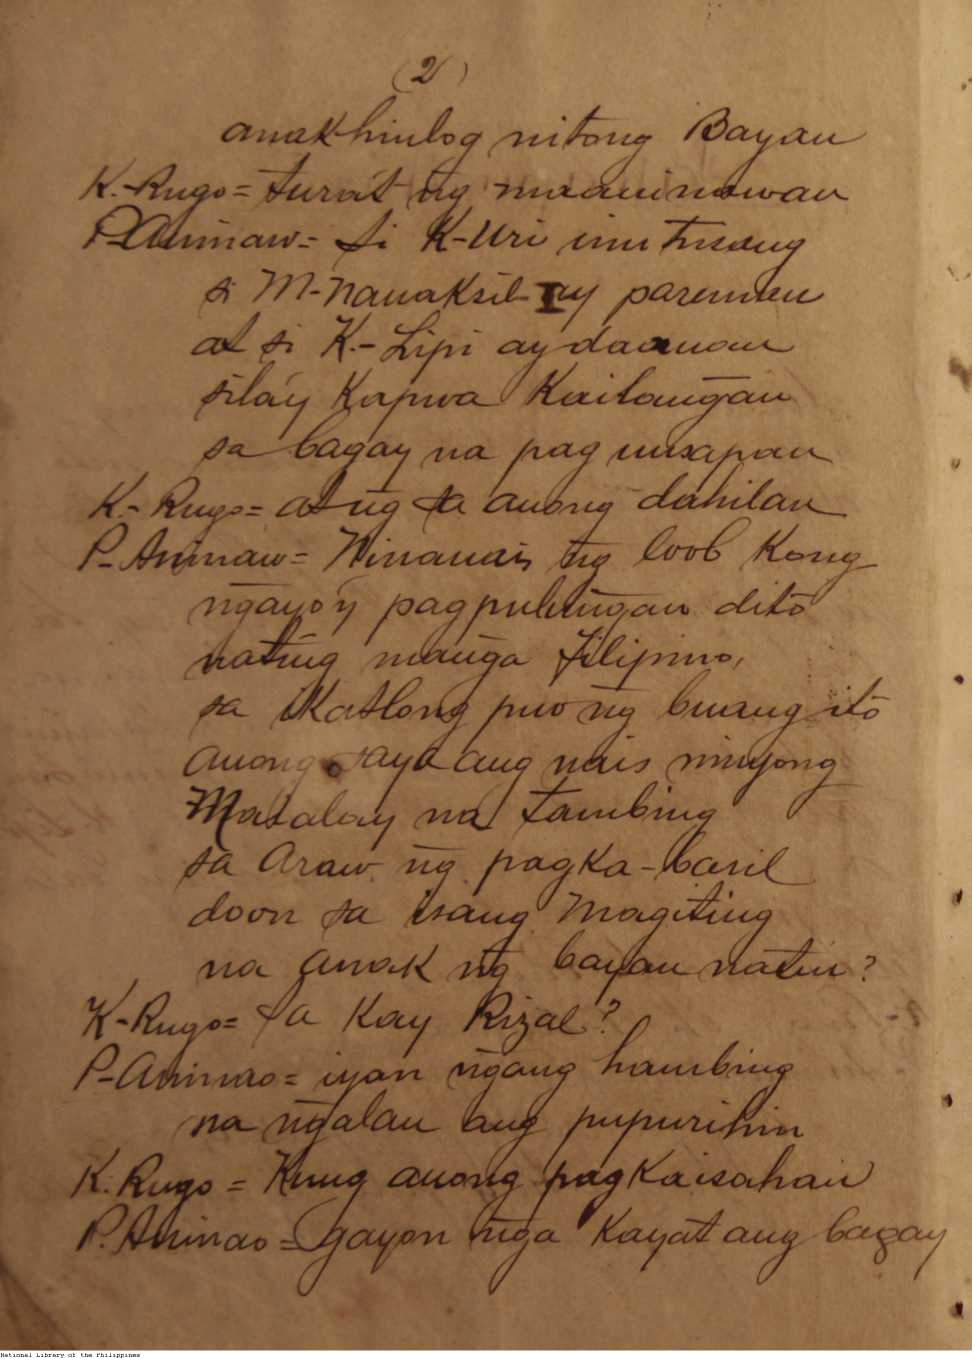 (2)
anak-hinlog nitong Bayan
K.-Rugo= turát n̄g maaninawan
P-Aninaw= Si K-Uri inutusang
si M-Nanaksil ay paremen
at si K.-Lipi ay daanan
siláy kapwa kailan̄gan
sa bagay na pag uusapan
K.- Rugo= at n̄g sa anong dahilan
P-Aninaw= Ninanais n̄g loob kong
n̄gayo'y pagpulun̄gan dito
nating man̄ga Filipino,
sa ikatlong puo n̄g buang ito
anong saya ang nais ninyong
Masalay na tambing
sa Araw n̄g pagka-baril
doon sa isang Magiting
na anak n̄g bayan natin?
K-Rugo= Sa kay Rizal?
P-Aninao= iyan n̄gang hambing
na n̄galan ang pupurihin
K. Rugo = Kung anong pagkaisahan
P. Aninao= gayon n̄ga kayat ang bagay
National Library of the Philippines